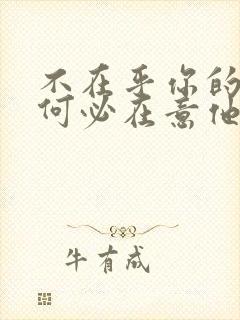 不在乎你的
何必在意他
牛有成